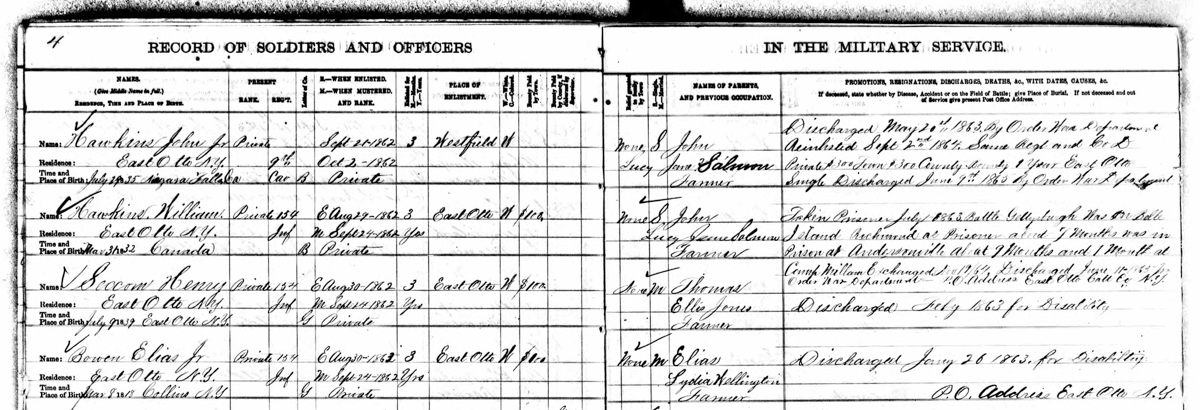 4
RECORD OF SOLDIERS AND OFFICERS
IN THE MILITARY SERVICE.
NAMES.
(Give Middle Name in full.)
RESIDENCE, TIME AND PLACE OF BIRTH.
PRESENT
RANK. REG'T.
Letter of Co.
E.—WHEN ENLISTED.
M.—WHEN MUSTERED,
AND RANK.
PLACE OF
ENLISTMENT.
NAMES OF PARENTS,
AND PREVIOUS OCCUPATION.
PROMOTIONS, RESIGNATIONS, DISCHARGES, DEATHS, &c., WITH DATES, CAUSES, &c.
If deceased, state whether by Disease, Accident or on the Field of Battle; give Place of Burial. If not deceased and out
of Service give present Post Office Address.
Name: Hawkins John Jr Private Sept 2 1862 3 Westfield W None S John Discharged May 20th 1863. By Order War Department
Reinlisted Sept. 2nd 1864. Same Regt and Co D
Residence: East Otto N.Y. 9th Oct 2 1862 Lucy Jane Salmon Private $300 Town $300 County bounty 1 Year East Otto
Time and Place of Birth: July 29 35 Niagara Falls Ca Cav B Private Farmer Single Discharged June 9th 1865 By Order War Department
Name: Hawkins William Private 154 E Aug 29 1862 3 East Otto W $100 None S John Taken Prisoner July 1863 Battle Gettysburgh Was on Belle
Residence: East Otto N.Y. Inf M Sept 24 1862 Yes Lucy Jane Salmon Island Richmond as Prisoner abed 7 Months was in
Time and Place of Birth: Mar 31 1832 Canada B Private Farmer Prison at Andersonville at 9 Months and 1 Month at
Camp Millam Exchanged Discharged June 1865 by
Order War Department P.O. Address East Otto Catt Co N.Y.
Name: Henry Private 154 E Aug 30 1862 3 East Otto W $100 None M Thomas
Residence: East Otto N.Y. Inf M Sept 24 1862 Yes Ellis Jones Discharged Feby 1863 for Disability
Time and Place of Birth: July 9 1839 East Otto N.Y. G Private Farmer
Name: Bowen Elias Jr Private 154 E Aug 30 1862 3 East Otto W $100 None M Elias Discharged Jany 26 1863. for Disability
Residence: East Otto N.Y. Inf M Sept 24 1862 Yes Lydia Wellington
Time and Place of Birth: Mar 8 Collins N.Y. G Private Farmer P.O. Address East Otto N.Y.